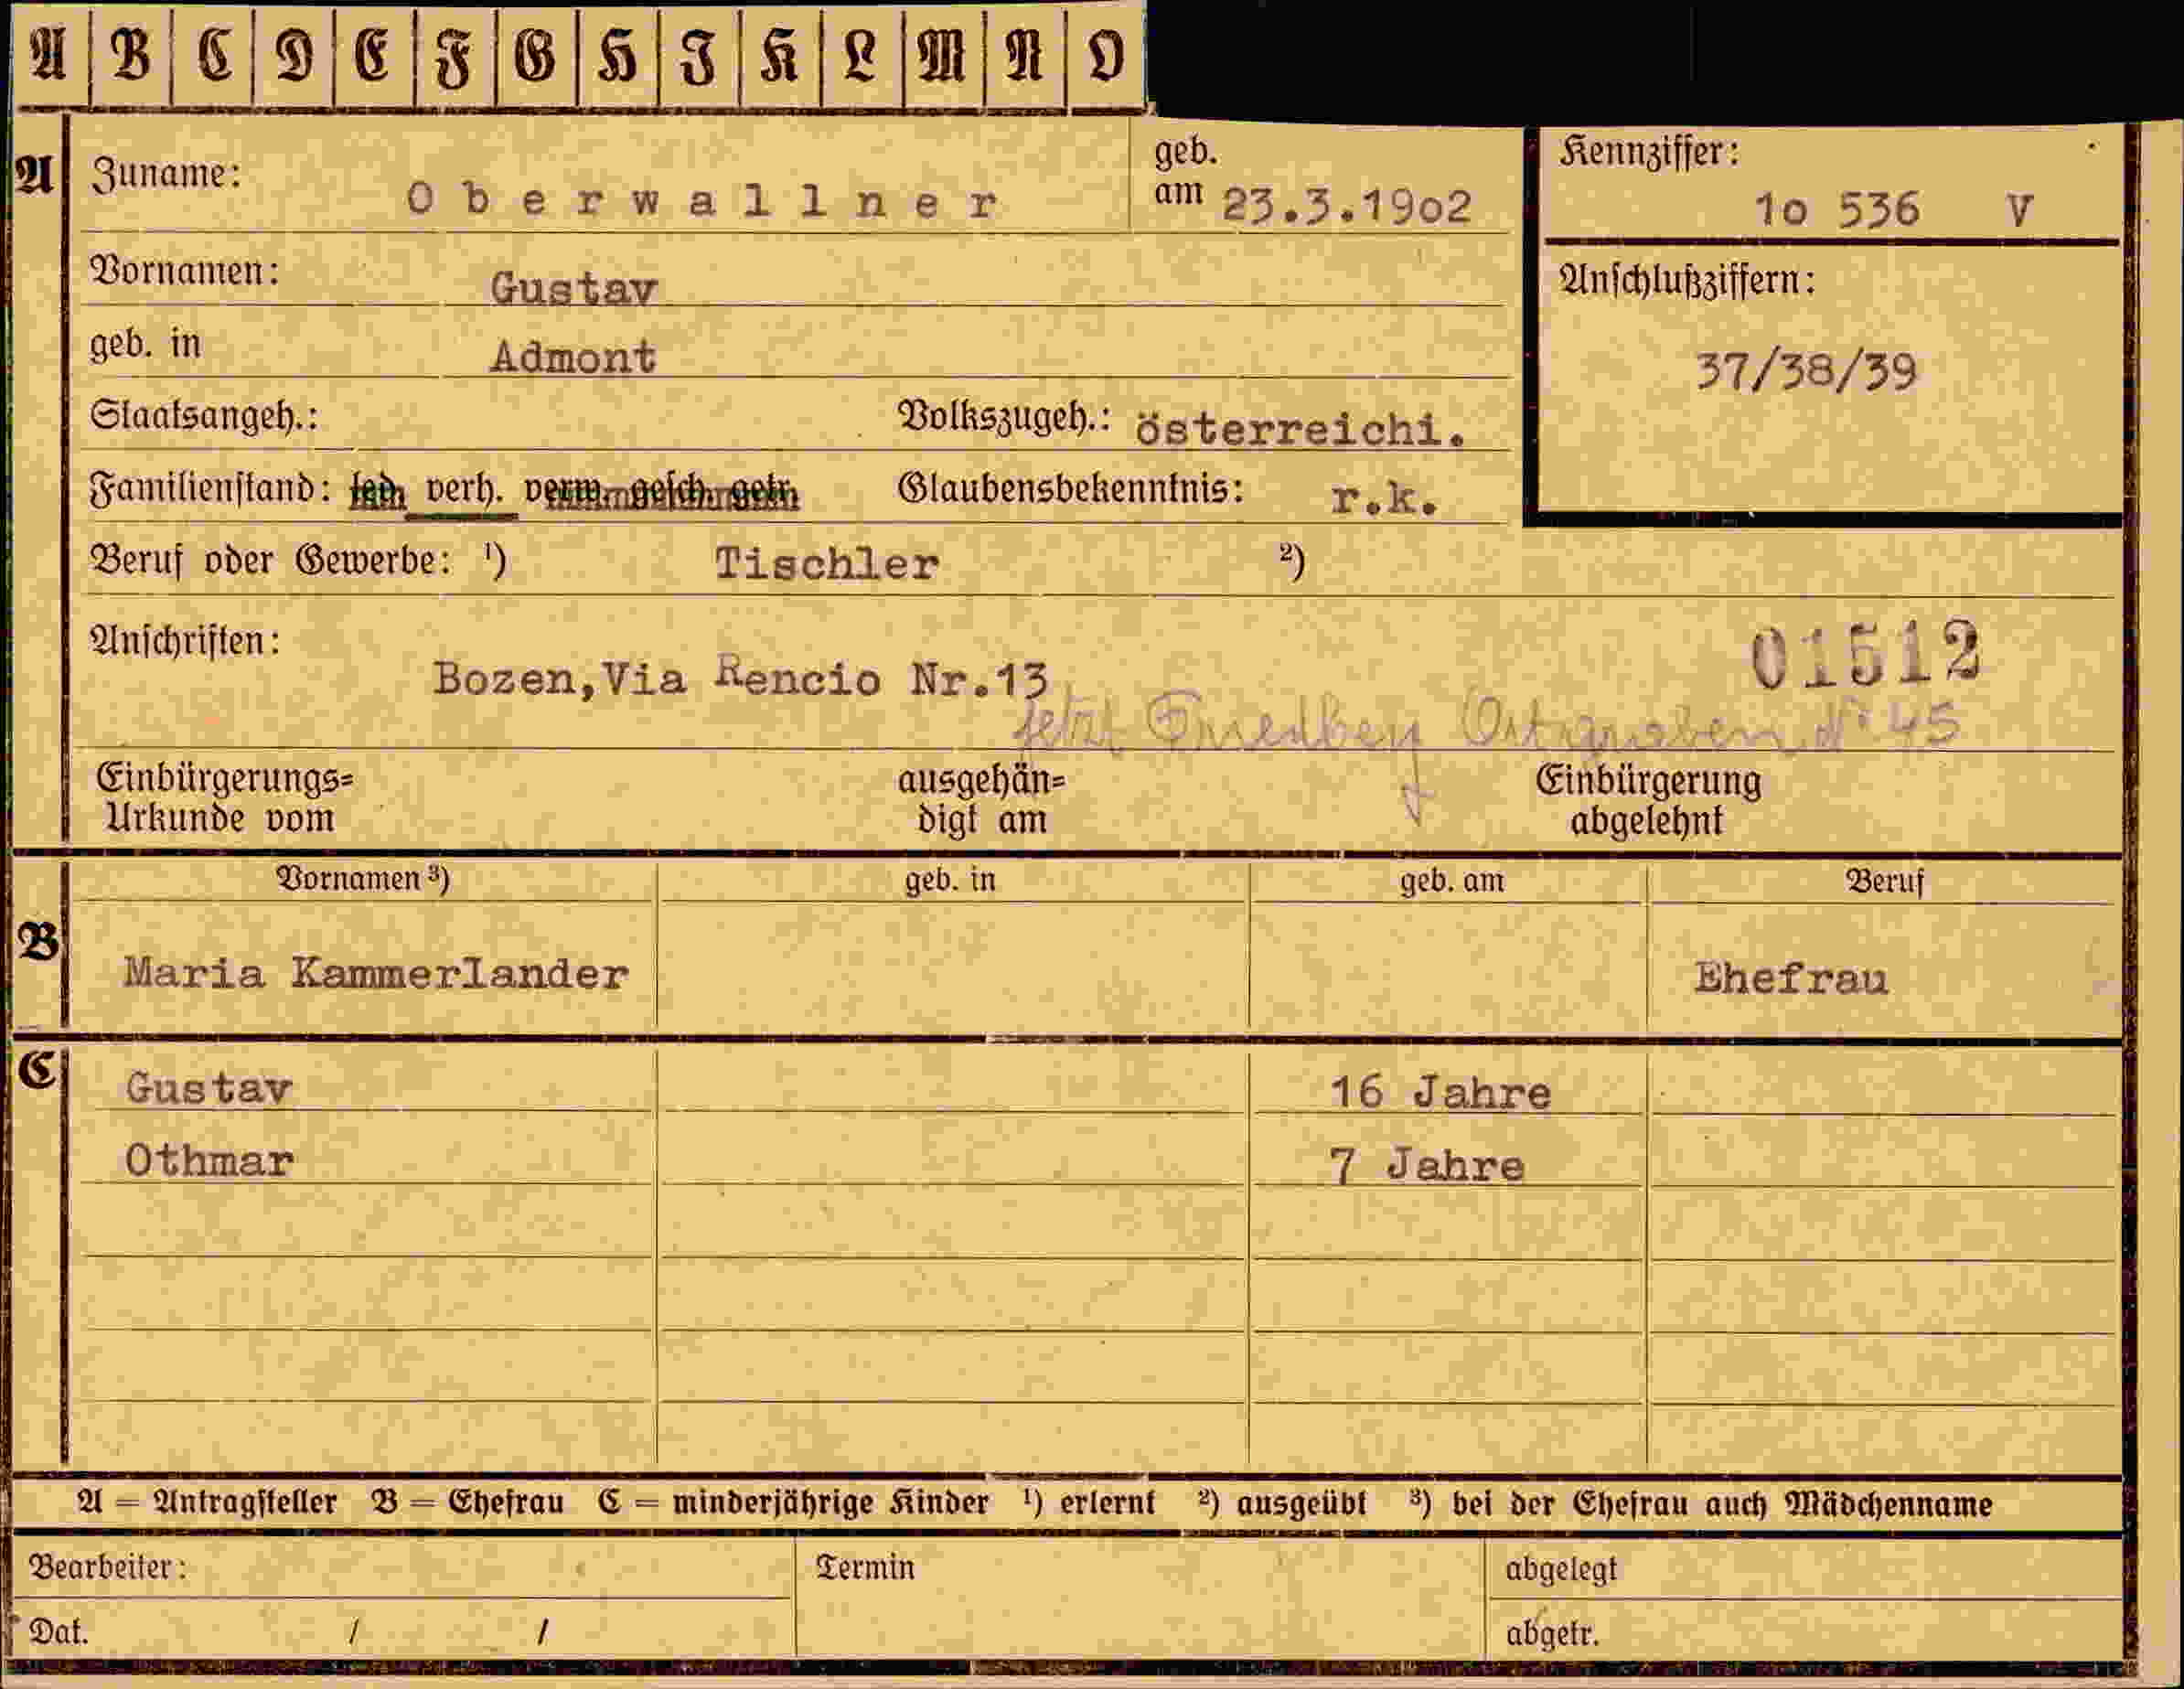 A B C D E F G H J K L M N O
A Zuname: Oberwallner geb. am 23.3.19o2 Kennziffer: 1o 536 V
Vornamen: Gustav Anschlußziffern:
geb. in Admont 37/38/39
Staatsangeh.: Volkszugeh.: österreichi.
Familienstand: led. verh. verw. gesch. getr. Glaubensbekenntnis: r.k.
Beruf oder Gewerbe: ¹) Tischler ²)
Anschriften: 01512
Bozen,Via Rencio Nr.13
jetzt Friedberg Ortgraben Nº 45
Einbürgerungs= ausgehän= Einbürgerung
Urkunde vom digt am abgelehnt
Vornamen ³) geb. in geb. am Beruf
B Maria Kammerlander Ehefrau
C Gustav 16 Jahre
Othmar 7 Jahre
A = Antragsteller B = Ehefrau C = minderjährige Kinder ¹) erlernt ²) ausgeübt ³) bei der Ehefrau auch Mädchenname
Bearbeiter: Termin abgelegt
Dat. / / abgetr.